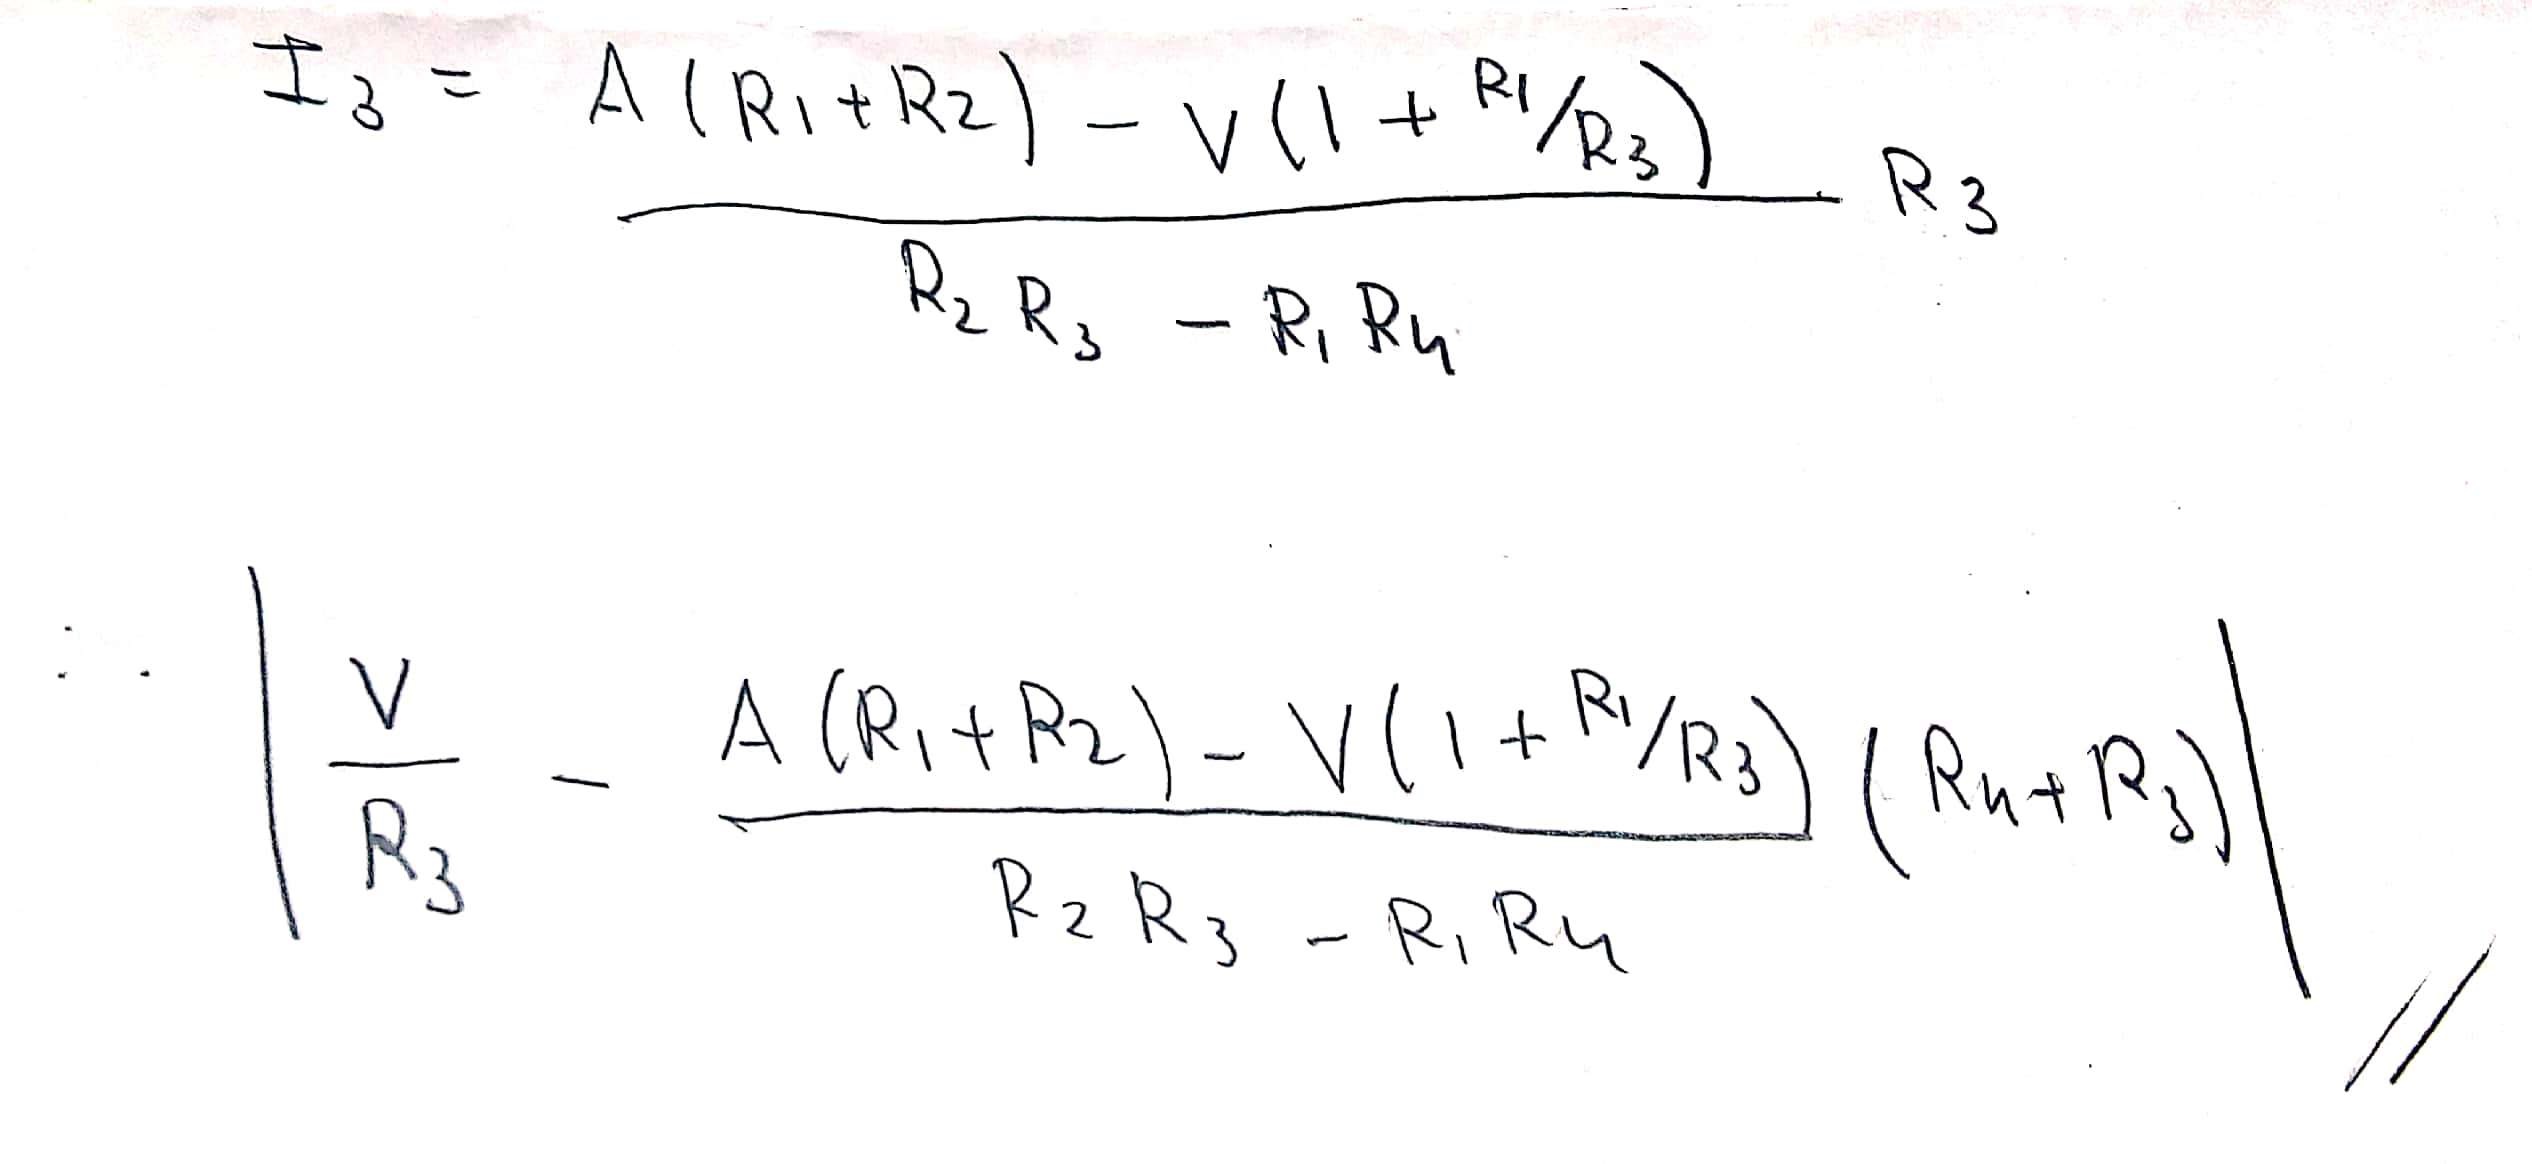 I3 = A(R1+R2) - V(1 + R1/R3) / R2R3 - R1R4 R3
∴ | V/R3 - A(R1+R2) - V(1 + R1/R3) / R2R3 - R1R4 (R4+R3) | //